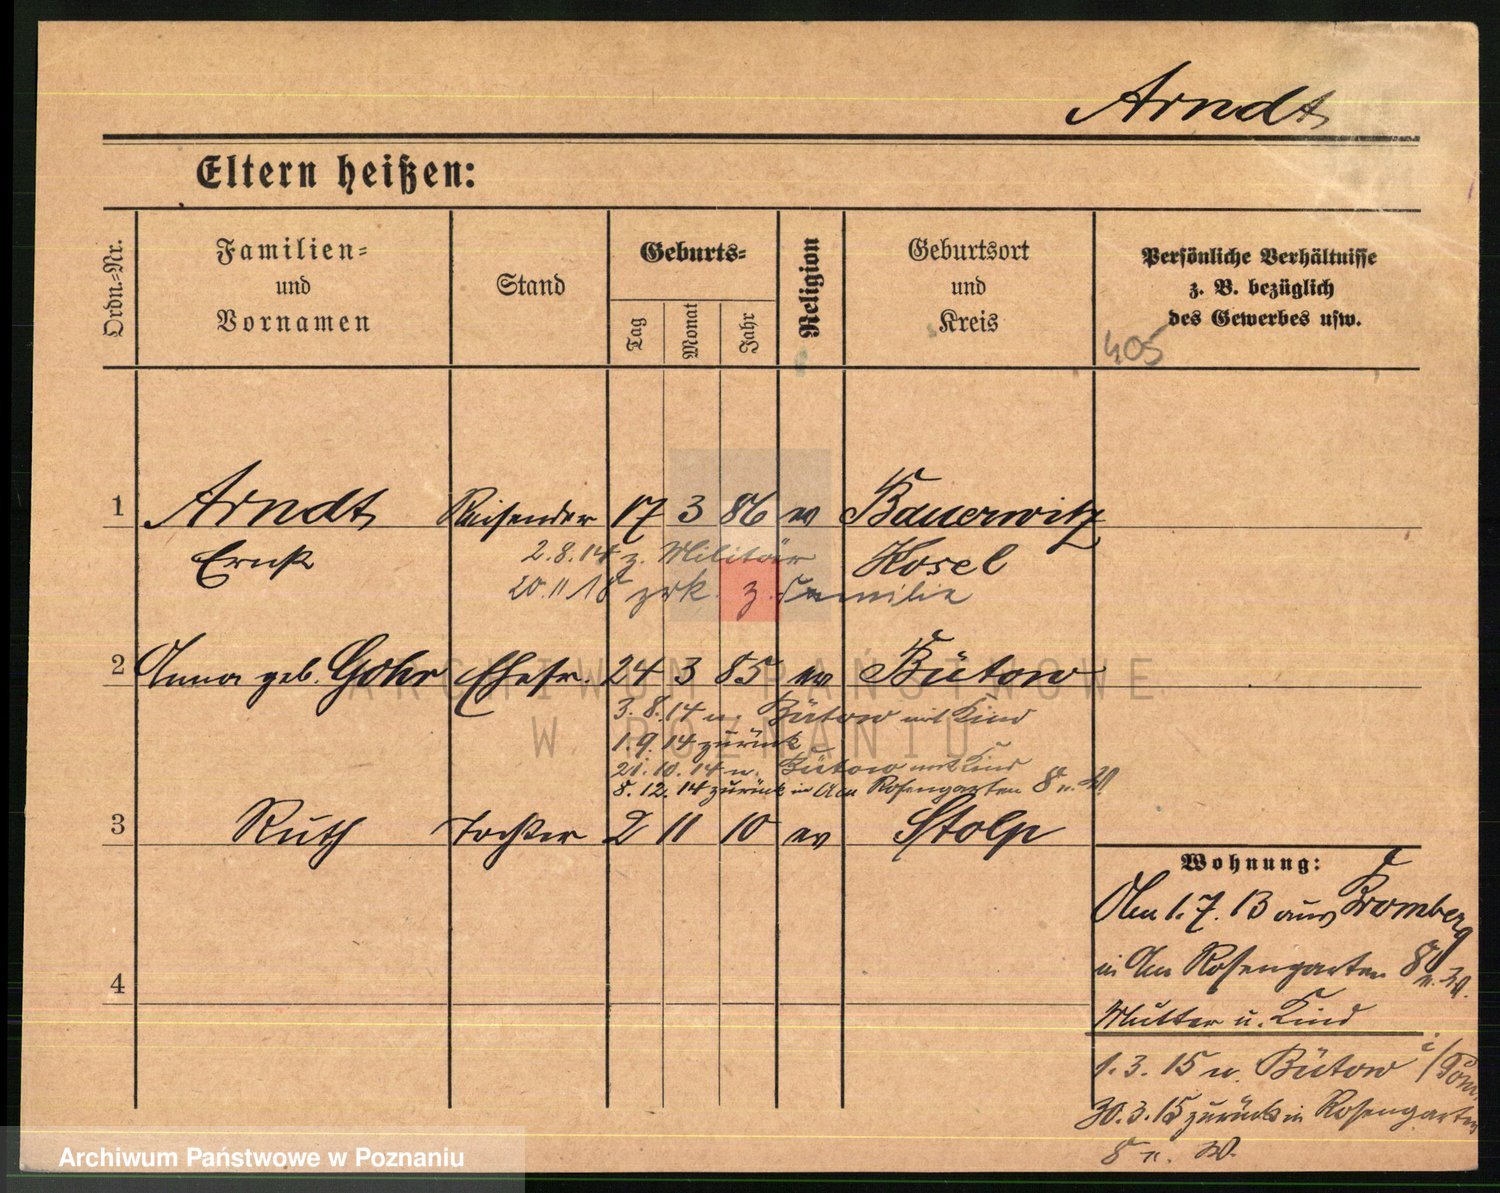 Arndt
Eltern heißen:
Ordn.-Nr.
Familien-
und
Vornamen
Stand
Geburts-
Tag
Monat
Jahr
Religion
Geburtsort
und
Kreis
Persönliche Verhältnisse
z. B. bezüglich
des Gewerbes usw.
405
1 Arndt Reisender 17 3 86 ev Bauerwitz
Ernst Kosel
2.8.14 z. Militär
20.11.18 zrk. z. Familie
2 Anna geb. Gohr Ehefr. 24 3 85 ev Bütow
3.8.14 n. Bütow mit Kind
1.9.14 zurück
21.10.14 n. Bütow mit Kind
8.12.14 zurück in Am Rosengarten 8 n. W.
3 Ruth Tochter 2 11 10 ev Stolp
4
Wohnung:
Am 1.7.13 aus Bromberg
in Am Rosengarten 8 n. W.
Mutter u. Kind
1.3.15 n. Bütow i/Pom.
30.3.15 zurück in Rosengarten
8 n. W.
ARCHIWUM PAŃSTWOWE
W POZNANIU
Archiwum Państwowe w Poznaniu